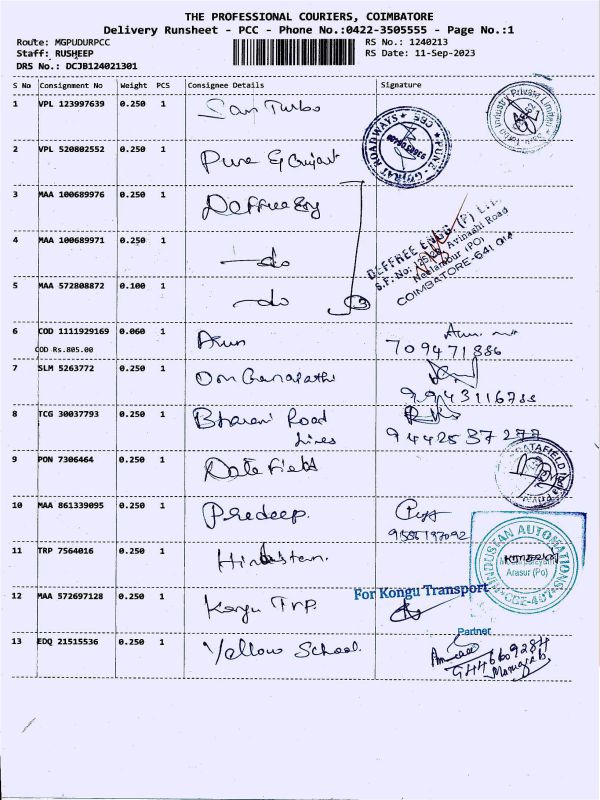 THE PROFESSIONAL COURIERS, COIMBATORE
Delivery Runsheet - PCC - Phone No.:0422-3505555 - Page No.:1
Route: MGPUDURPCC RS No.: 1240213
Staff: RUSHEEP RS Date: 11-Sep-2023
DRS No.: DCJB124021301
S No Consignment No Weight PCS Consignee Details Signature
1 VPL 123997639 0.250 1 Sam Turbo
2 VPL 520802552 0.250 1 Pune & Gujarat
PUNE - GUJRAT ROADWAYS
CBE
3 MAA 100689976 0.250 1 Deffree Eng
DEFFREE ENGG. (P) LTD.
Avinashi Road
Neelambur (PO)
COIMBATORE-641 014
4 MAA 100689971 0.250 1 do
5 MAA 572808872 0.100 1 do
6 COD 1111929169 0.060 1 Arun
COD Rs.805.00
709471886
7 SLM 5263772 0.250 1 Om Ganapathi
8 TCG 30037793 0.250 1 Bharani Road
Lines
9442537277
9 PON 7306464 0.250 1 Date Field
DATAFIELD
10 MAA 861339095 0.250 1 Predeep.
11 TRP 7564016 0.250 1 Hindustan
HINDUSTAN AUTOMATIONS
Arasur (Po)
12 MAA 572697128 0.250 1 Kongu Trp.
For Kongu Transport
Partner
13 EDQ 21515536 0.250 1 Yellow School.
Manager